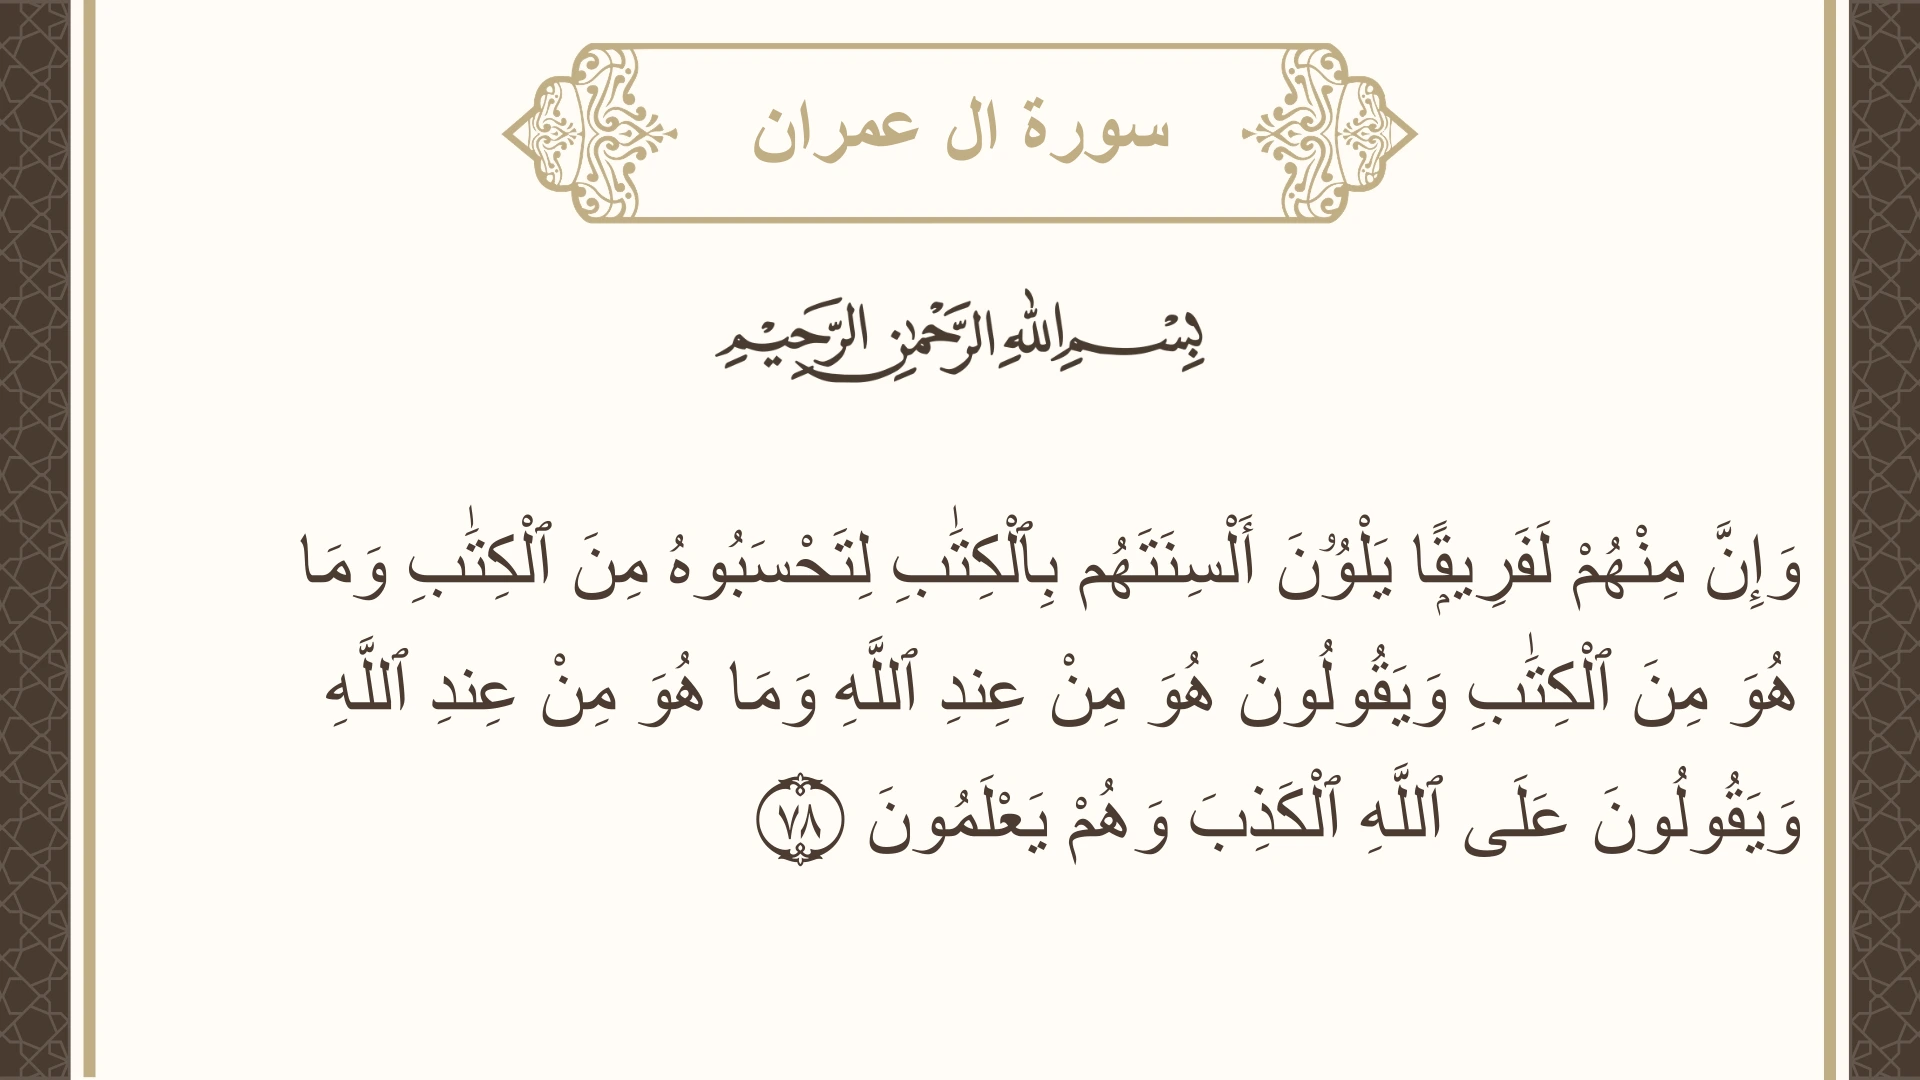 سورة ال عمران
بِسْمِ اللهِ الرَّحْمٰنِ الرَّحِيْمِ
وَإِنَّ مِنْهُمْ لَفَرِيقًۭا يَلْوُۥنَ أَلْسِنَتَهُم بِٱلْكِتَـٰبِ لِتَحْسَبُوهُ مِنَ ٱلْكِتَـٰبِ وَمَا
هُوَ مِنَ ٱلْكِتَـٰبِ وَيَقُولُونَ هُوَ مِنْ عِندِ ٱللَّهِ وَمَا هُوَ مِنْ عِندِ ٱللَّهِ
وَيَقُولُونَ عَلَى ٱللَّهِ ٱلْكَذِبَ وَهُمْ يَعْلَمُونَ ٧٨